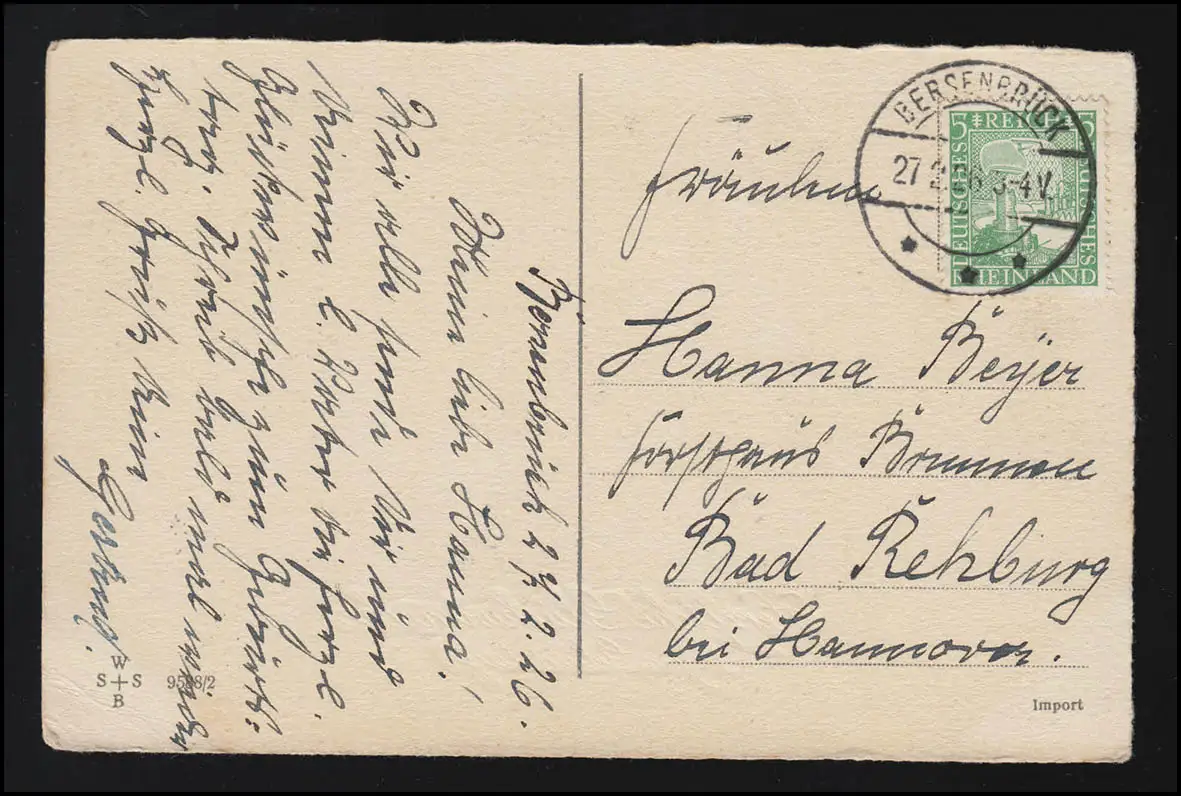 BERSENBRÜCK
27.2.26 3-4V.
5 REICH 5
DEUTSCHES
DEUTSCHES
RHEINLAND
Fräulein
Hanna Beyer
Forsthaus Brunnen
Bad Rehburg
bei Hannover.
Import
Bersenbrück 27.2.26.
Meine liebe Hanna!
Wir alle send. Dir und
Deinen l. die herzl.
Glückwünsche zum Geburts-
tag. Schreib bald mal wieder
Herzl. Grüße Deine
Gertrud.
W
S + S
B
9588/2